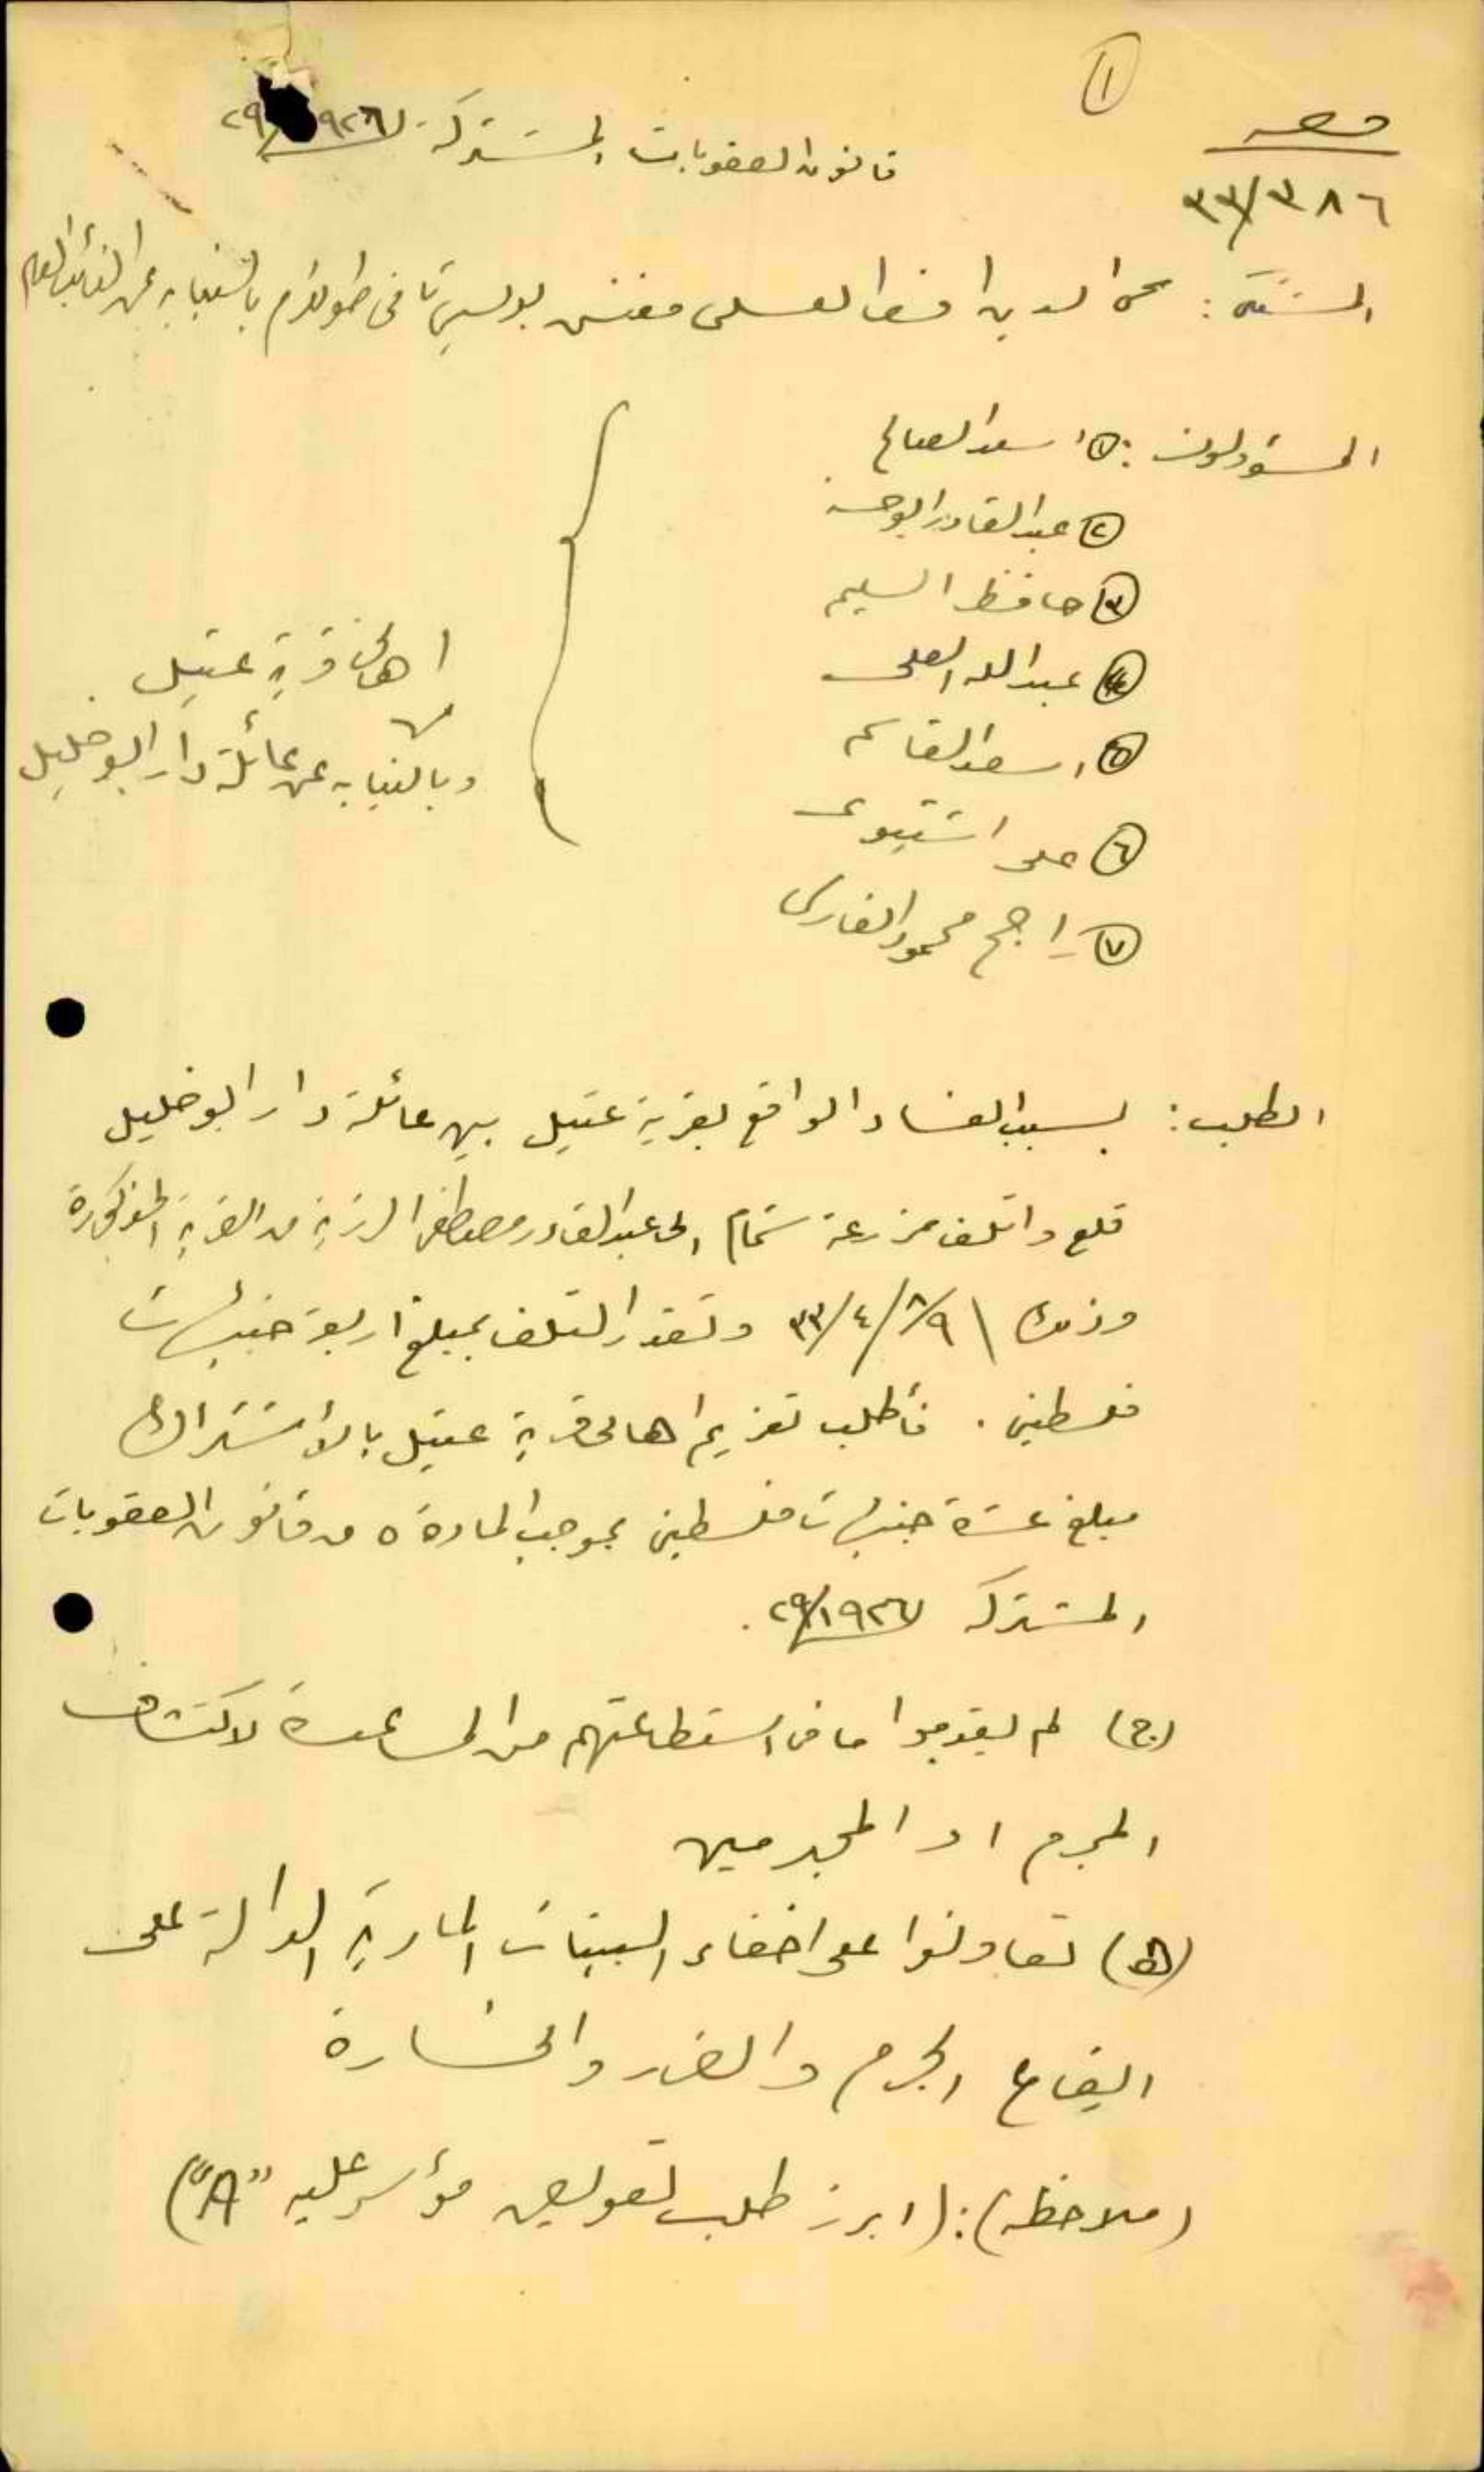 ١
قانون العقوبات المشتركة ١٩٢٦/٢٩
٣٨٦/٣٣
المشتكي: محي الدين افندي العسلي مفتش بوليس ثاني طولكرم بالنيابة عن النائب العام
المسؤولون: ١ اسعد الصالح
٢ عبدالقادر ابو حسنه
٣ حافظ السليم
٤ عبدالله العلي
٥ اسعد القاسم
٦ علي اشتيوي
٧ راجح محمود الفارس
اهالي قرية عتيل
وبالنيابه عن عائلة دار ابو خليل
الطلب: بسبب الفساد الواقع بقرية عتيل بين عائلة دار ابو خليل
قلع واتلف مزرعة شمام الى عبدالقادر مصطفى من القرية المذكورة
وذلك ٨/٩/٤/٣٣ وتقدر التلف بمبلغ اربعة جنيهات
فلسطيني . فأطلب تغريم اهالي قرية عتيل بالاشتراك
مبلغ عشرة جنيهات فلسطيني بموجب المادة ٥ من قانون العقوبات
المشتركه ١٩٢٦/٢٩ .
(ج) لم يقدموا ما في استطاعتهم من المساعدة لاكتشاف
المجرم او المجرمين
(ه) تعاونوا على اخفاء البينات المادية الدالة على
ايقاع الجرم والضرر والخسارة
(ملاحظه): (ابرز طلب تعويض مؤشر عليه "A")